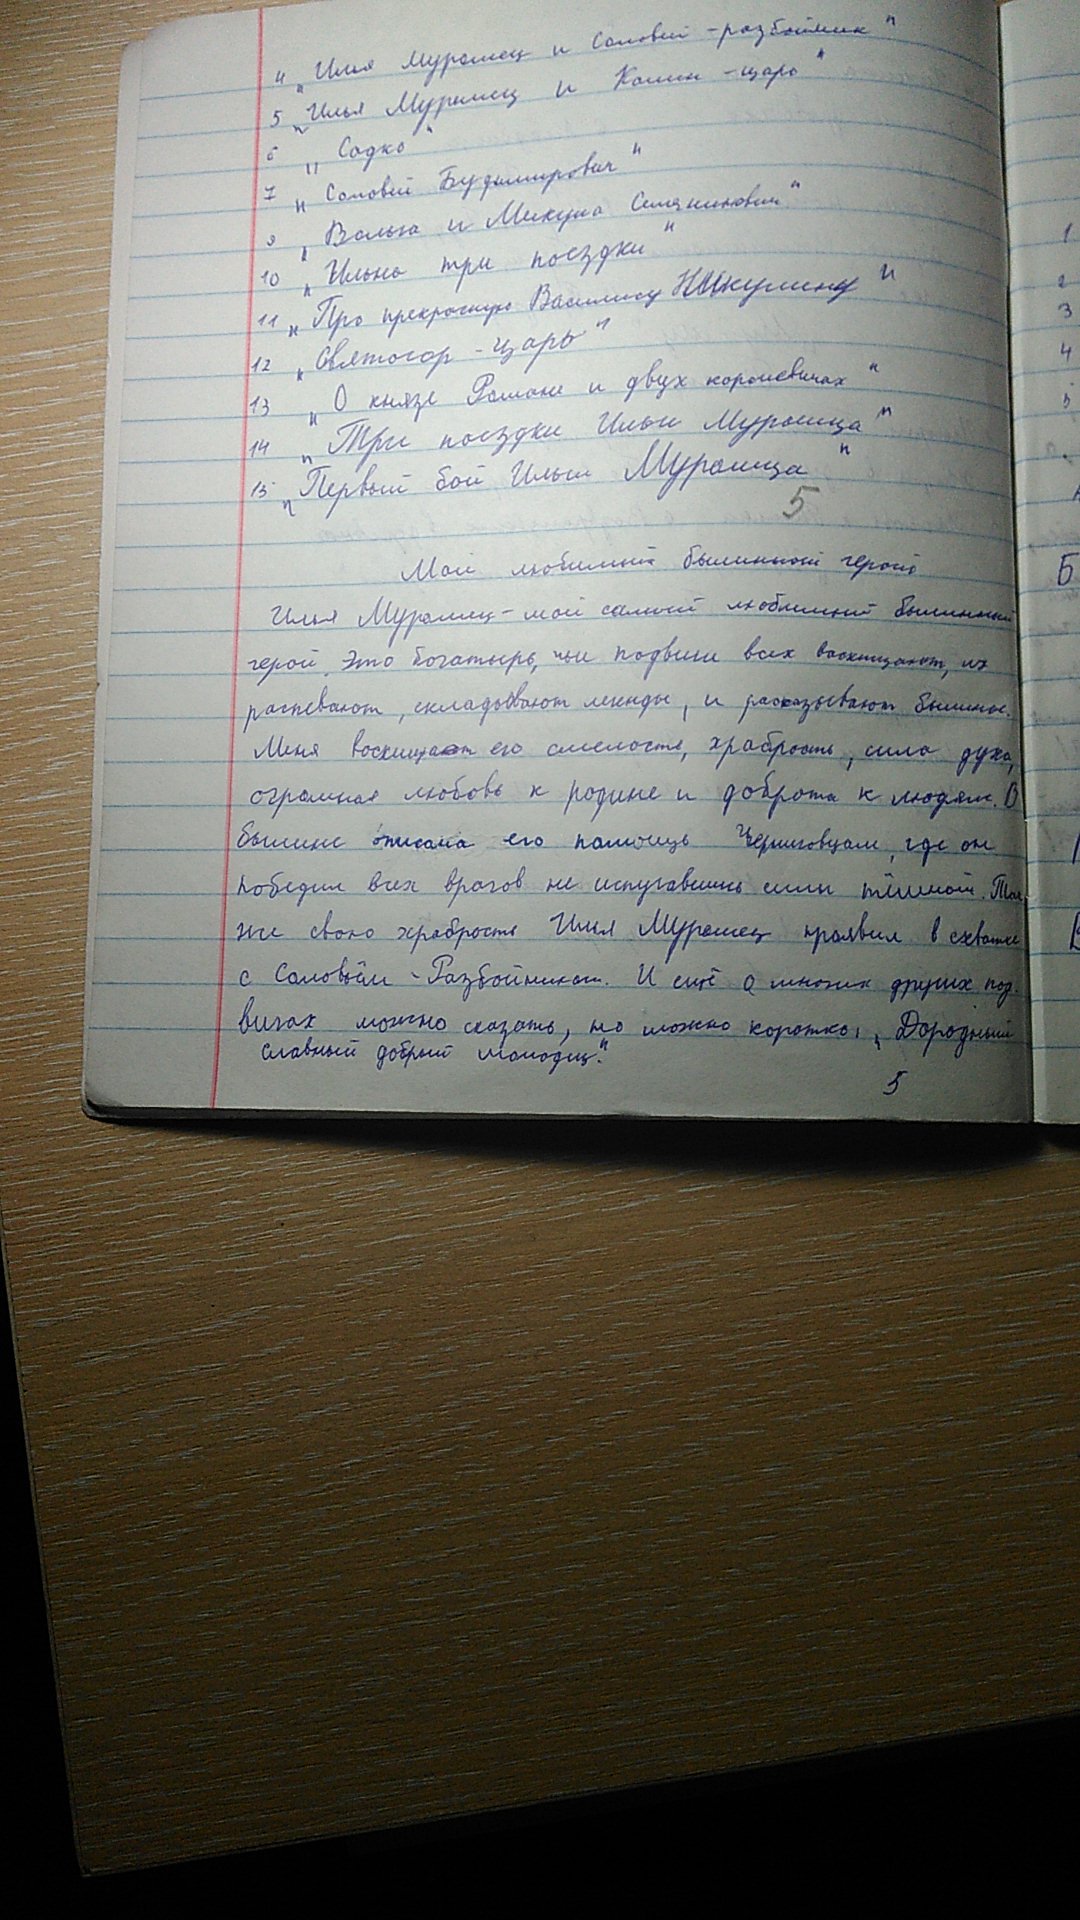 4 „Илья Муромец и Соловей-разбойник"
5 „Илья Муромец и Калин-царь"
6 „Садко"
7 „Соловей Будимирович"
9 „Вольга и Микула Селянинович"
10 „Ильно три поездки"
11 „Про прекрасную Василису Никулину"
12 „Святогор-царь"
13 „О князе Романе и двух королевичах"
14 „Три поездки Ильи Муромца"
15 „Первый бой Ильи Муромца"
5
Мой любимый былинный герой
Илья Муромец - мой самый любимый былинный
герой. Это богатырь, чьи подвиги всех восхищают, их
распевают, складывают легенды, и расказывают былины.
Меня восхищает его смелость, храбрость, сила духа,
огромная любовь к родине и доброта к людям. В
былине описана его помощь Черниговцам, где он
победил всех врагов не испугавшись силы тёмной. Так
же свою храбрость Илья Муромец проявил в схватке
с Соловьём-Разбойником. И ещё о многих других под-
вигах можно сказать, но можно коротко: „Дородный
славный добрый молодец."
5
1
2
3
4
5
Б
В